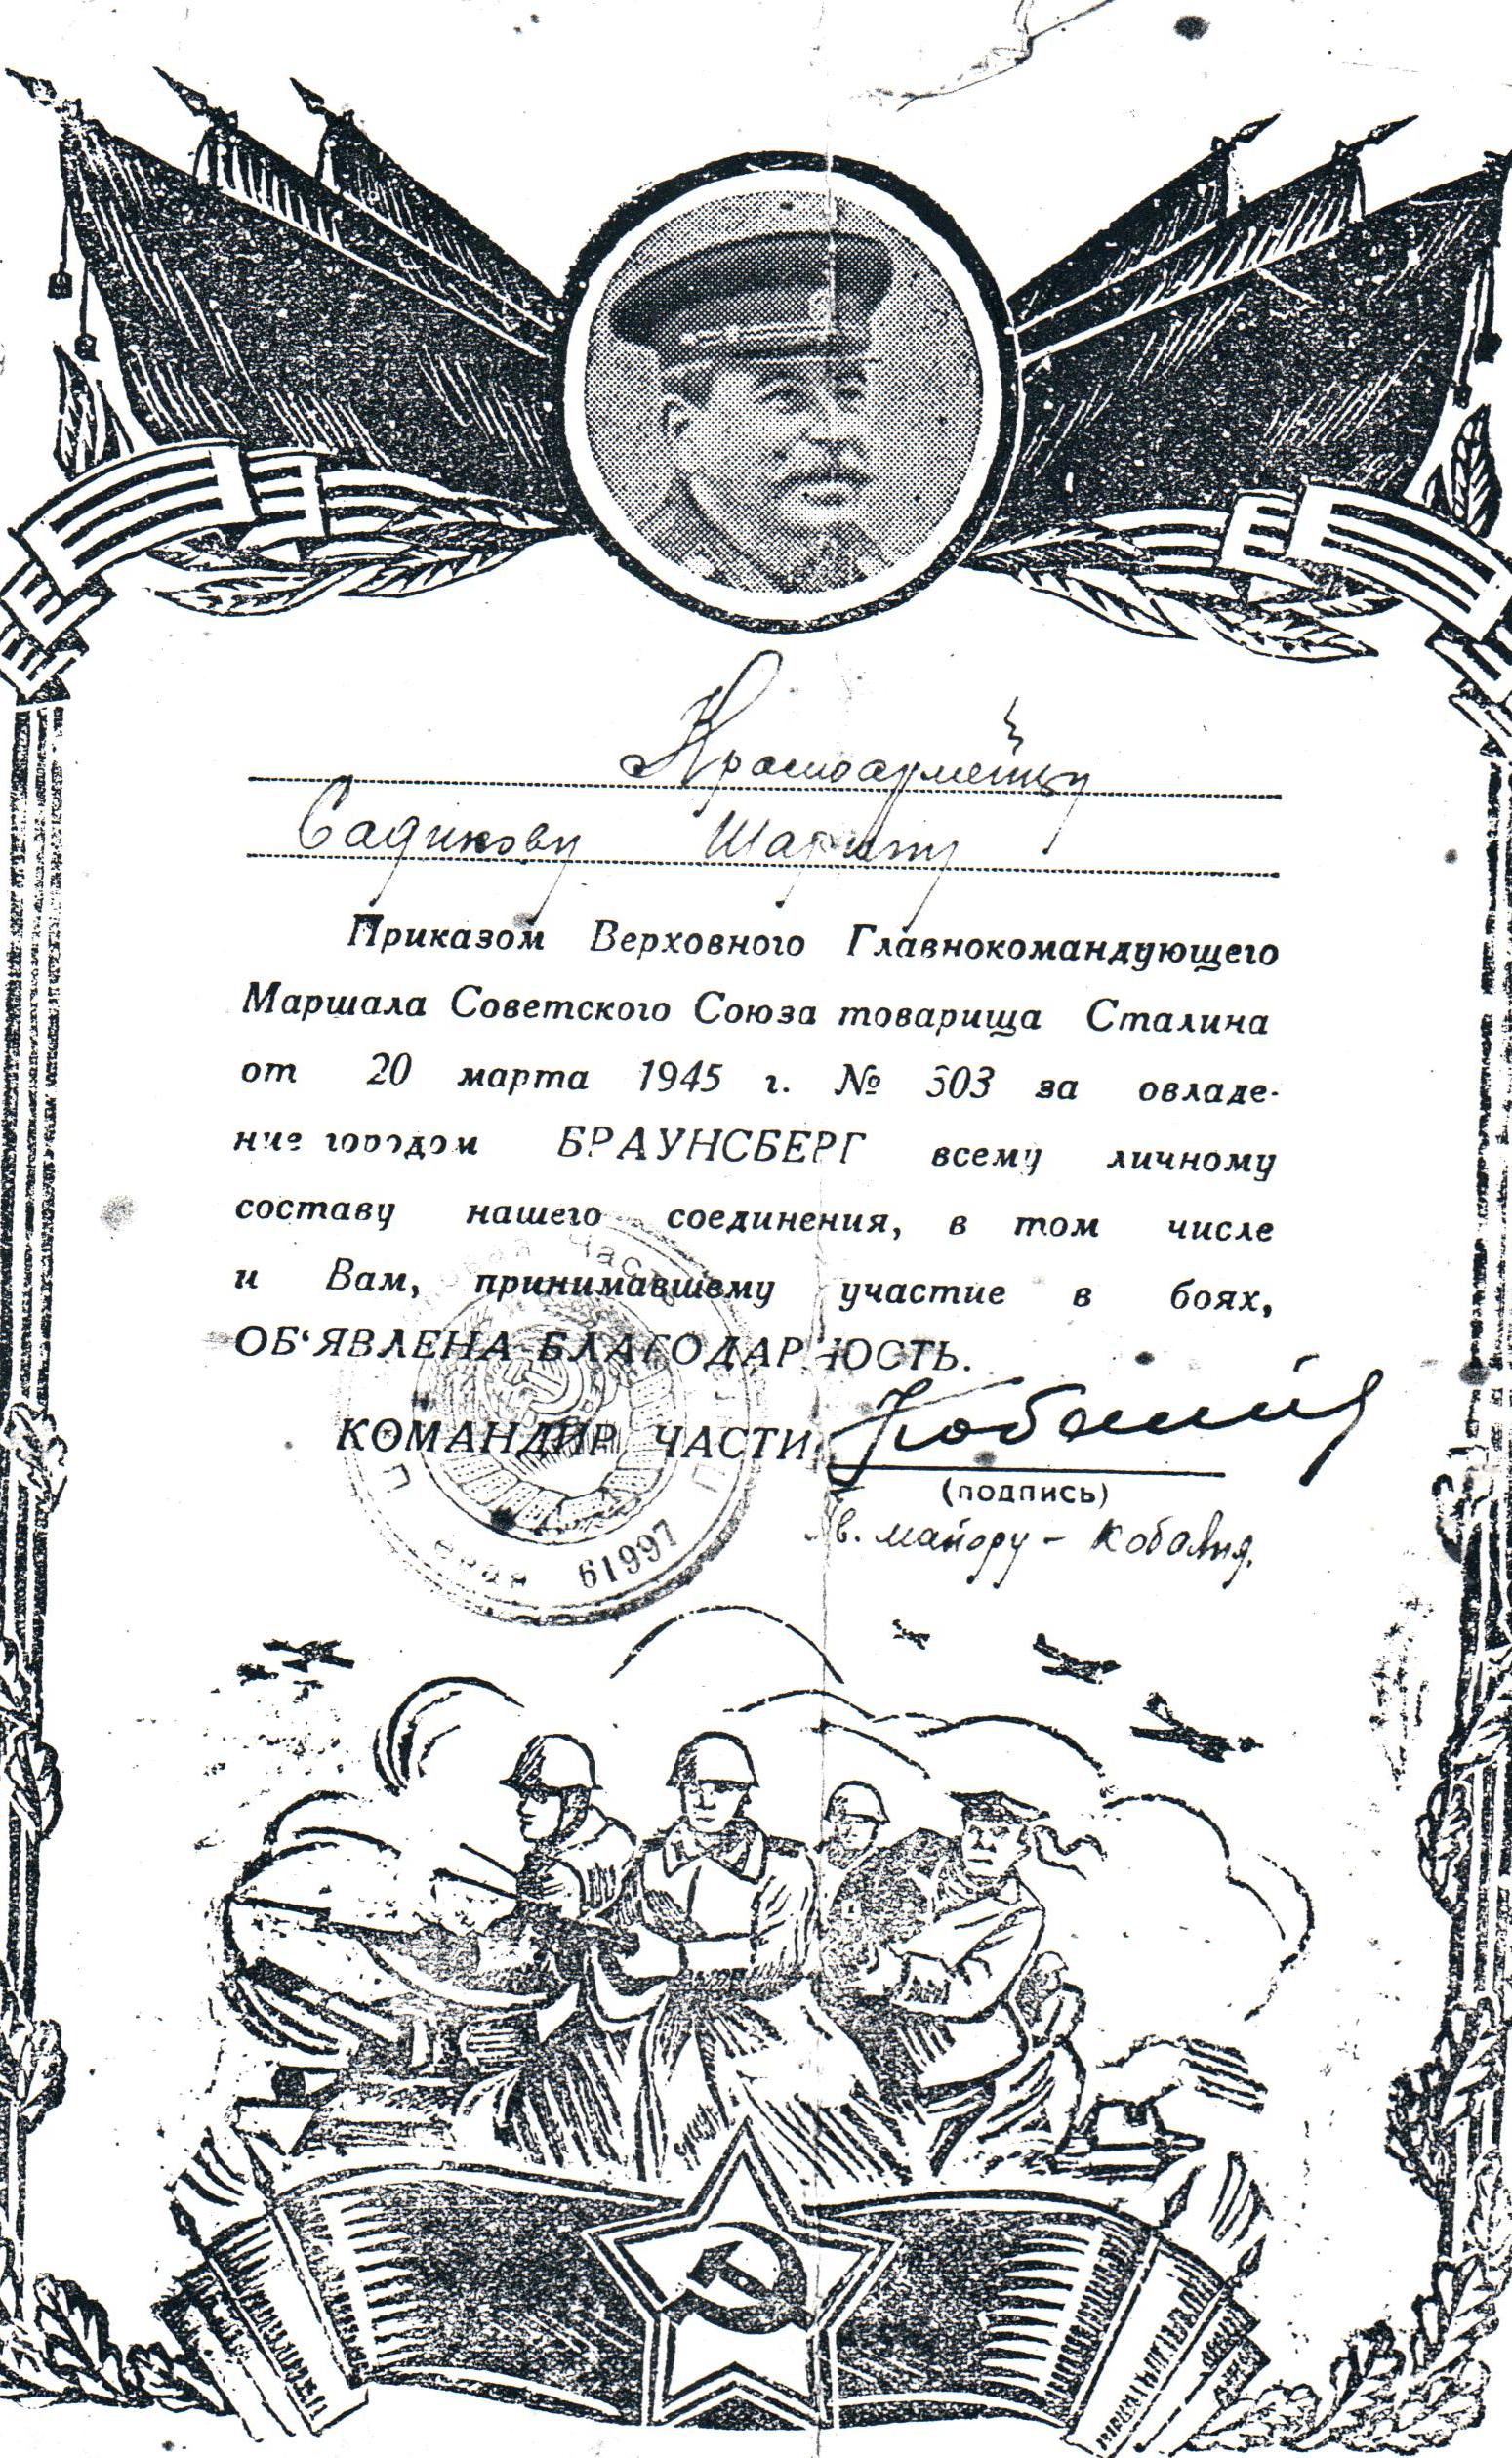 Красноармейцу
Садикову Шарипу
Приказом Верховного Главнокомандующего
Маршала Советского Союза товарища Сталина
от 20 марта 1945 г. № 303 за овладе-
ние городом БРАУНСБЕРГ всему личному
составу нашего соединения, в том числе
и Вам, принимавшему участие в боях,
ОБ‘ЯВЛЕНА БЛАГОДАРНОСТЬ.
КОМАНДИР ЧАСТИ
(подпись)
гв. майору - Кобалия.
часть
61997